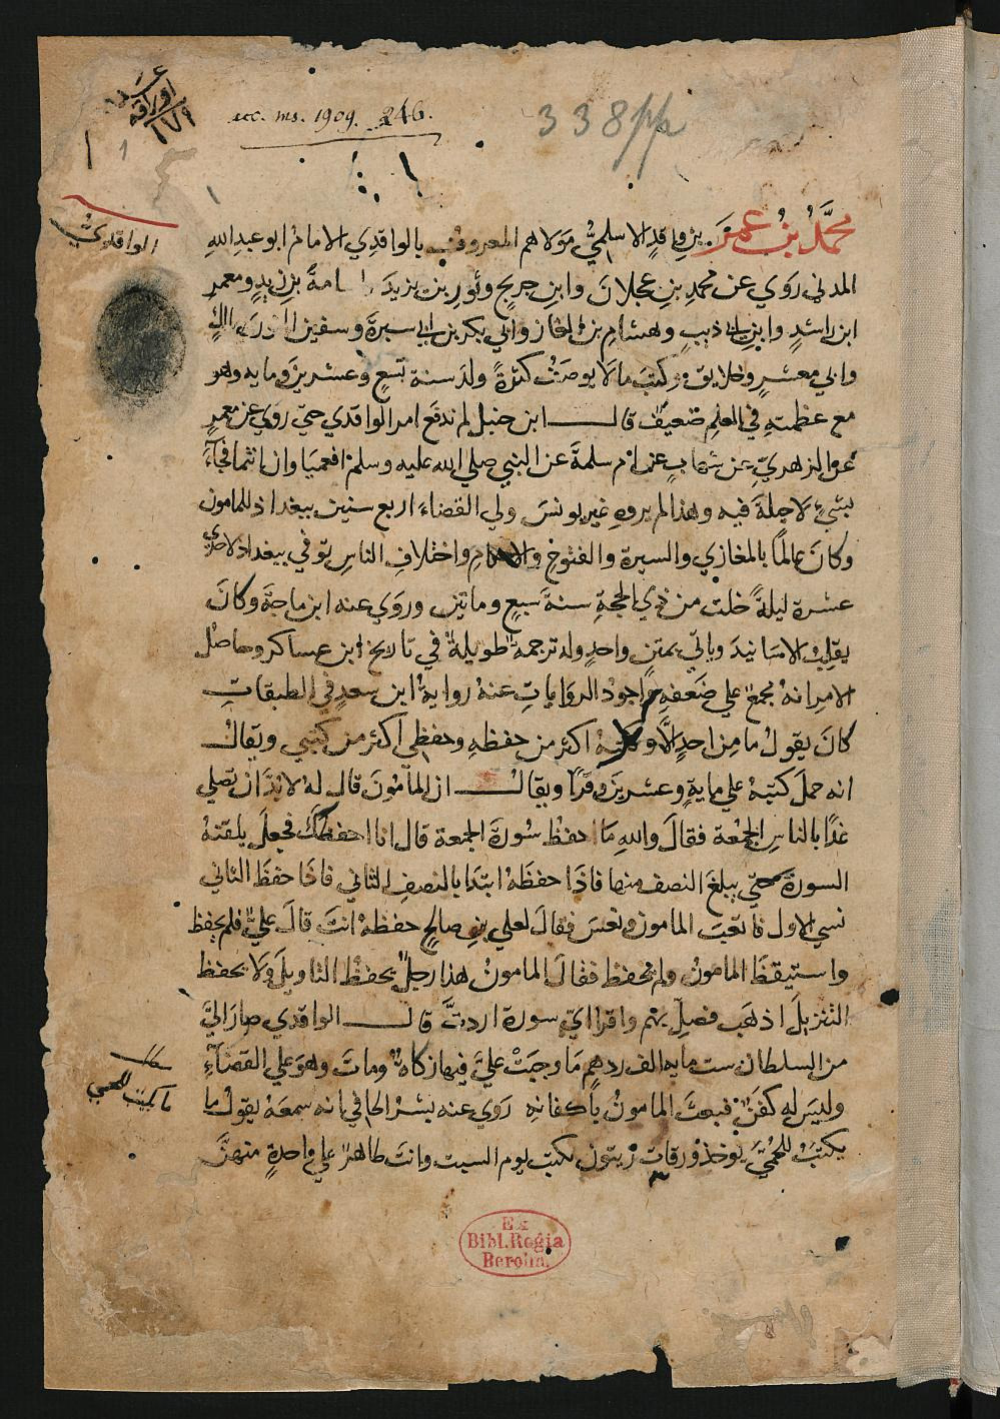 عدد
اوراقه
١٧٩
acc. ms. 1909. 246.
338 pp
1
الواقدي
محمد بن عمر بن واقد الاسلمي مولاهم المعروف بالواقدي الامام ابو عبد الله
المدني روي عن محمد بن عجلان وابن جريج وثور بن يزيد امة بن زيد ومعمر
ابن راشد وابن ابي ذيب وهشام بن الغاز وابي بكر بن ابي سبرة وسفين
وابي معشر وخلايق وكتب ما لا يوصف كثرة ولد سنة تسع وعشرين ومايه وهو
مع عظمته في العلم ضعيف قال ابن حنبل لم ندفع امر الواقدي حتي روي عن معمر
عن الزهري عن عن ام سلمة عن النبي صلي الله عليه وسلم افعمياوان انتما فجاء
بشيء لا حيلة فيه وهذا لم يروه غير يونس ولي القضاء اربع سنين ببغداد للمامون
وكان عالما بالمغازي والسيرة والفتوح والاحكام واختلاف الناس توفي ببغداد لاحدي
عشرة ليلة خلت من ذي الحجة سنة سبع وماتين وروي عنه ابن ماجة وكان
يقلب الاسانيد وياتي بمتن واحد وله ترجمة طويلة في تاريخ ابن عساكر وحاصل
الامر انه مجمع علي ضعفه واجود الروايات عنه رواية ابن سعد في الطبقات
كان يقول ما من احد الا وكتبه اكثر من حفظه وحفظي اكثر من كتبي ويقال
انه حمل كتبه علي ماية وعشرين وقرا ويقال ان المامون قال له لا بد ان تصلي
غدا بالناس الجمعة فقال والله ما احفظ سورة الجمعة قال انا احفظك فجعل يلقنه
السورة حتي يبلغ النصف منها فاذا حفظه ابتدا بالنصف الثاني فاذا حفظ الثاني
نسي الاول فاتعب المامون ونعس فقال لعلي بن صالح حفظه انت قال علي فلم يحفظ
واستيقظ المامون ولم يحفظ فقال المامون هذا رجل يحفظ التاويل ولا يحفظ
التنزيل اذهب فصل بهم واقرا اي سورة اردت قال الواقدي صار الي
من السلطان ست مايه الف درهم ما وجبت علي فيها زكاة ومات وهو علي القضاء
وليس له كفن فبعث المامون باكفانه روي عنه بشر الحافي انه سمعه يقول ما
يكتب للحمي يوخذ ورقات زيتون تكتب يوم السبت وانت طاهر علي واحدة منهن
مطلب
ما يكتب للحمي
Ex
Bibl. Regia
Berolin.